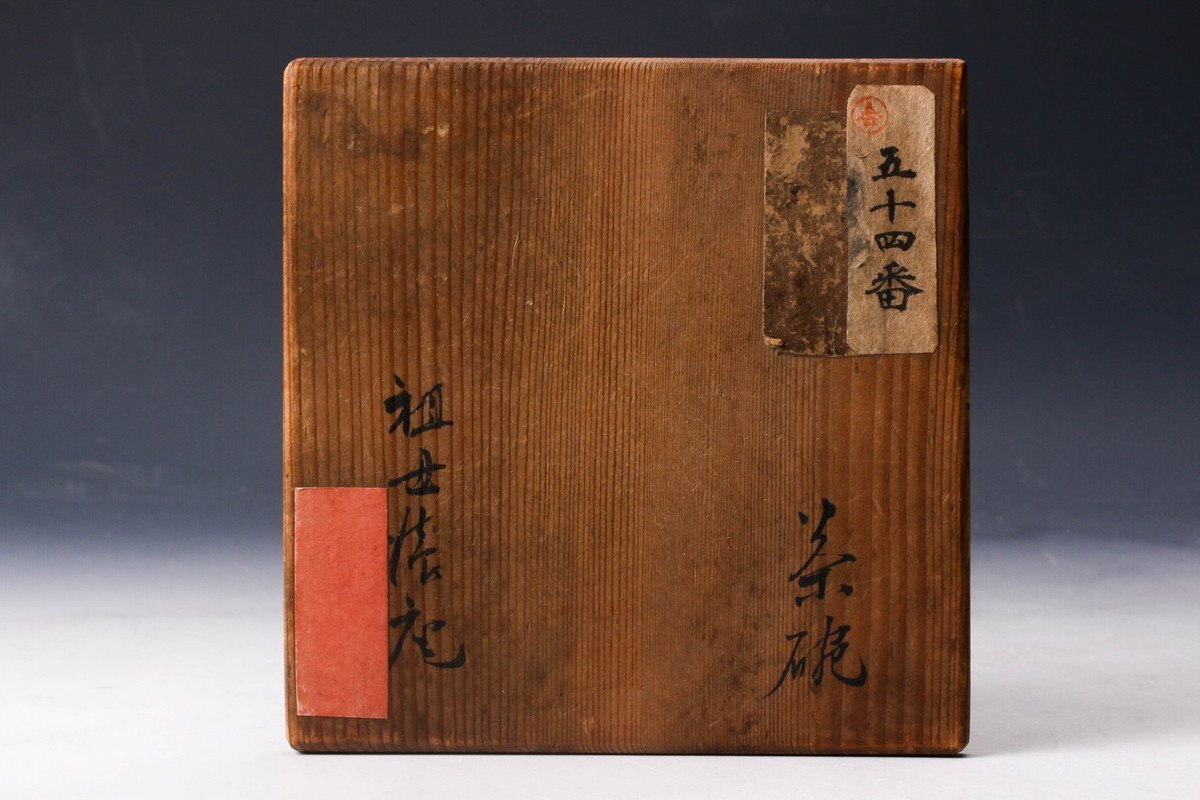 五十四番
茶碗
祖母懐庵